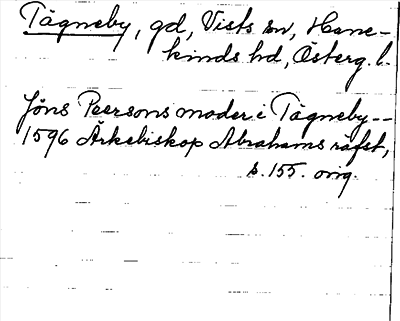 Tägneby, gd, Vists sn, Hane-
kinds hd, Österg. l.
Jöns Peersons moder i Tägneby--
1596 Ärkebiskop Abrahams räfst,
s. 155. orig.